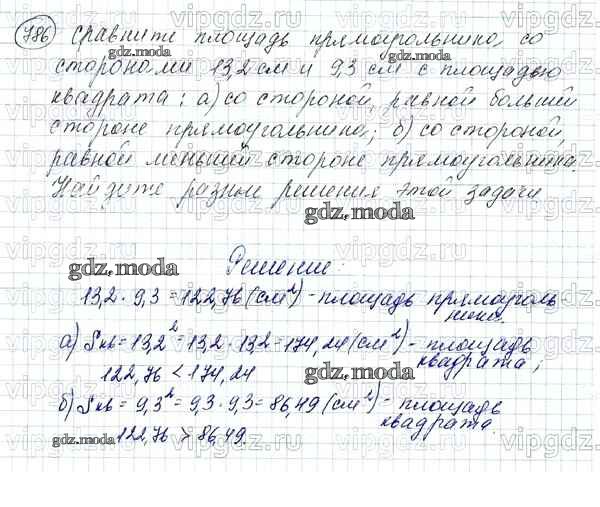 786 Сравните площадь прямоугольника со
сторонами 13,2 см и 9,3 см с площадью
квадрата: а) со стороной, равной большей
стороне прямоугольника; б) со стороной,
равной меньшей стороне прямоугольника.
Найдите разные решения этой задачи.
Решение:
13,2 · 9,3 = 122,76 (см²) - площадь прямоуголь
ника.
а) Sкв = 13,2² = 13,2 · 13,2 = 174,24 (см²) - площадь
квадрата;
122,76 < 174,24
б) Sкв = 9,3² = 9,3 · 9,3 = 86,49 (см²) - площадь
квадрата.
122,76 > 86,49.
gdz.moda
gdz.moda
gdz.moda
gdz.moda
gdz.moda
gdz.moda
gdz.moda
vipgdz.ru